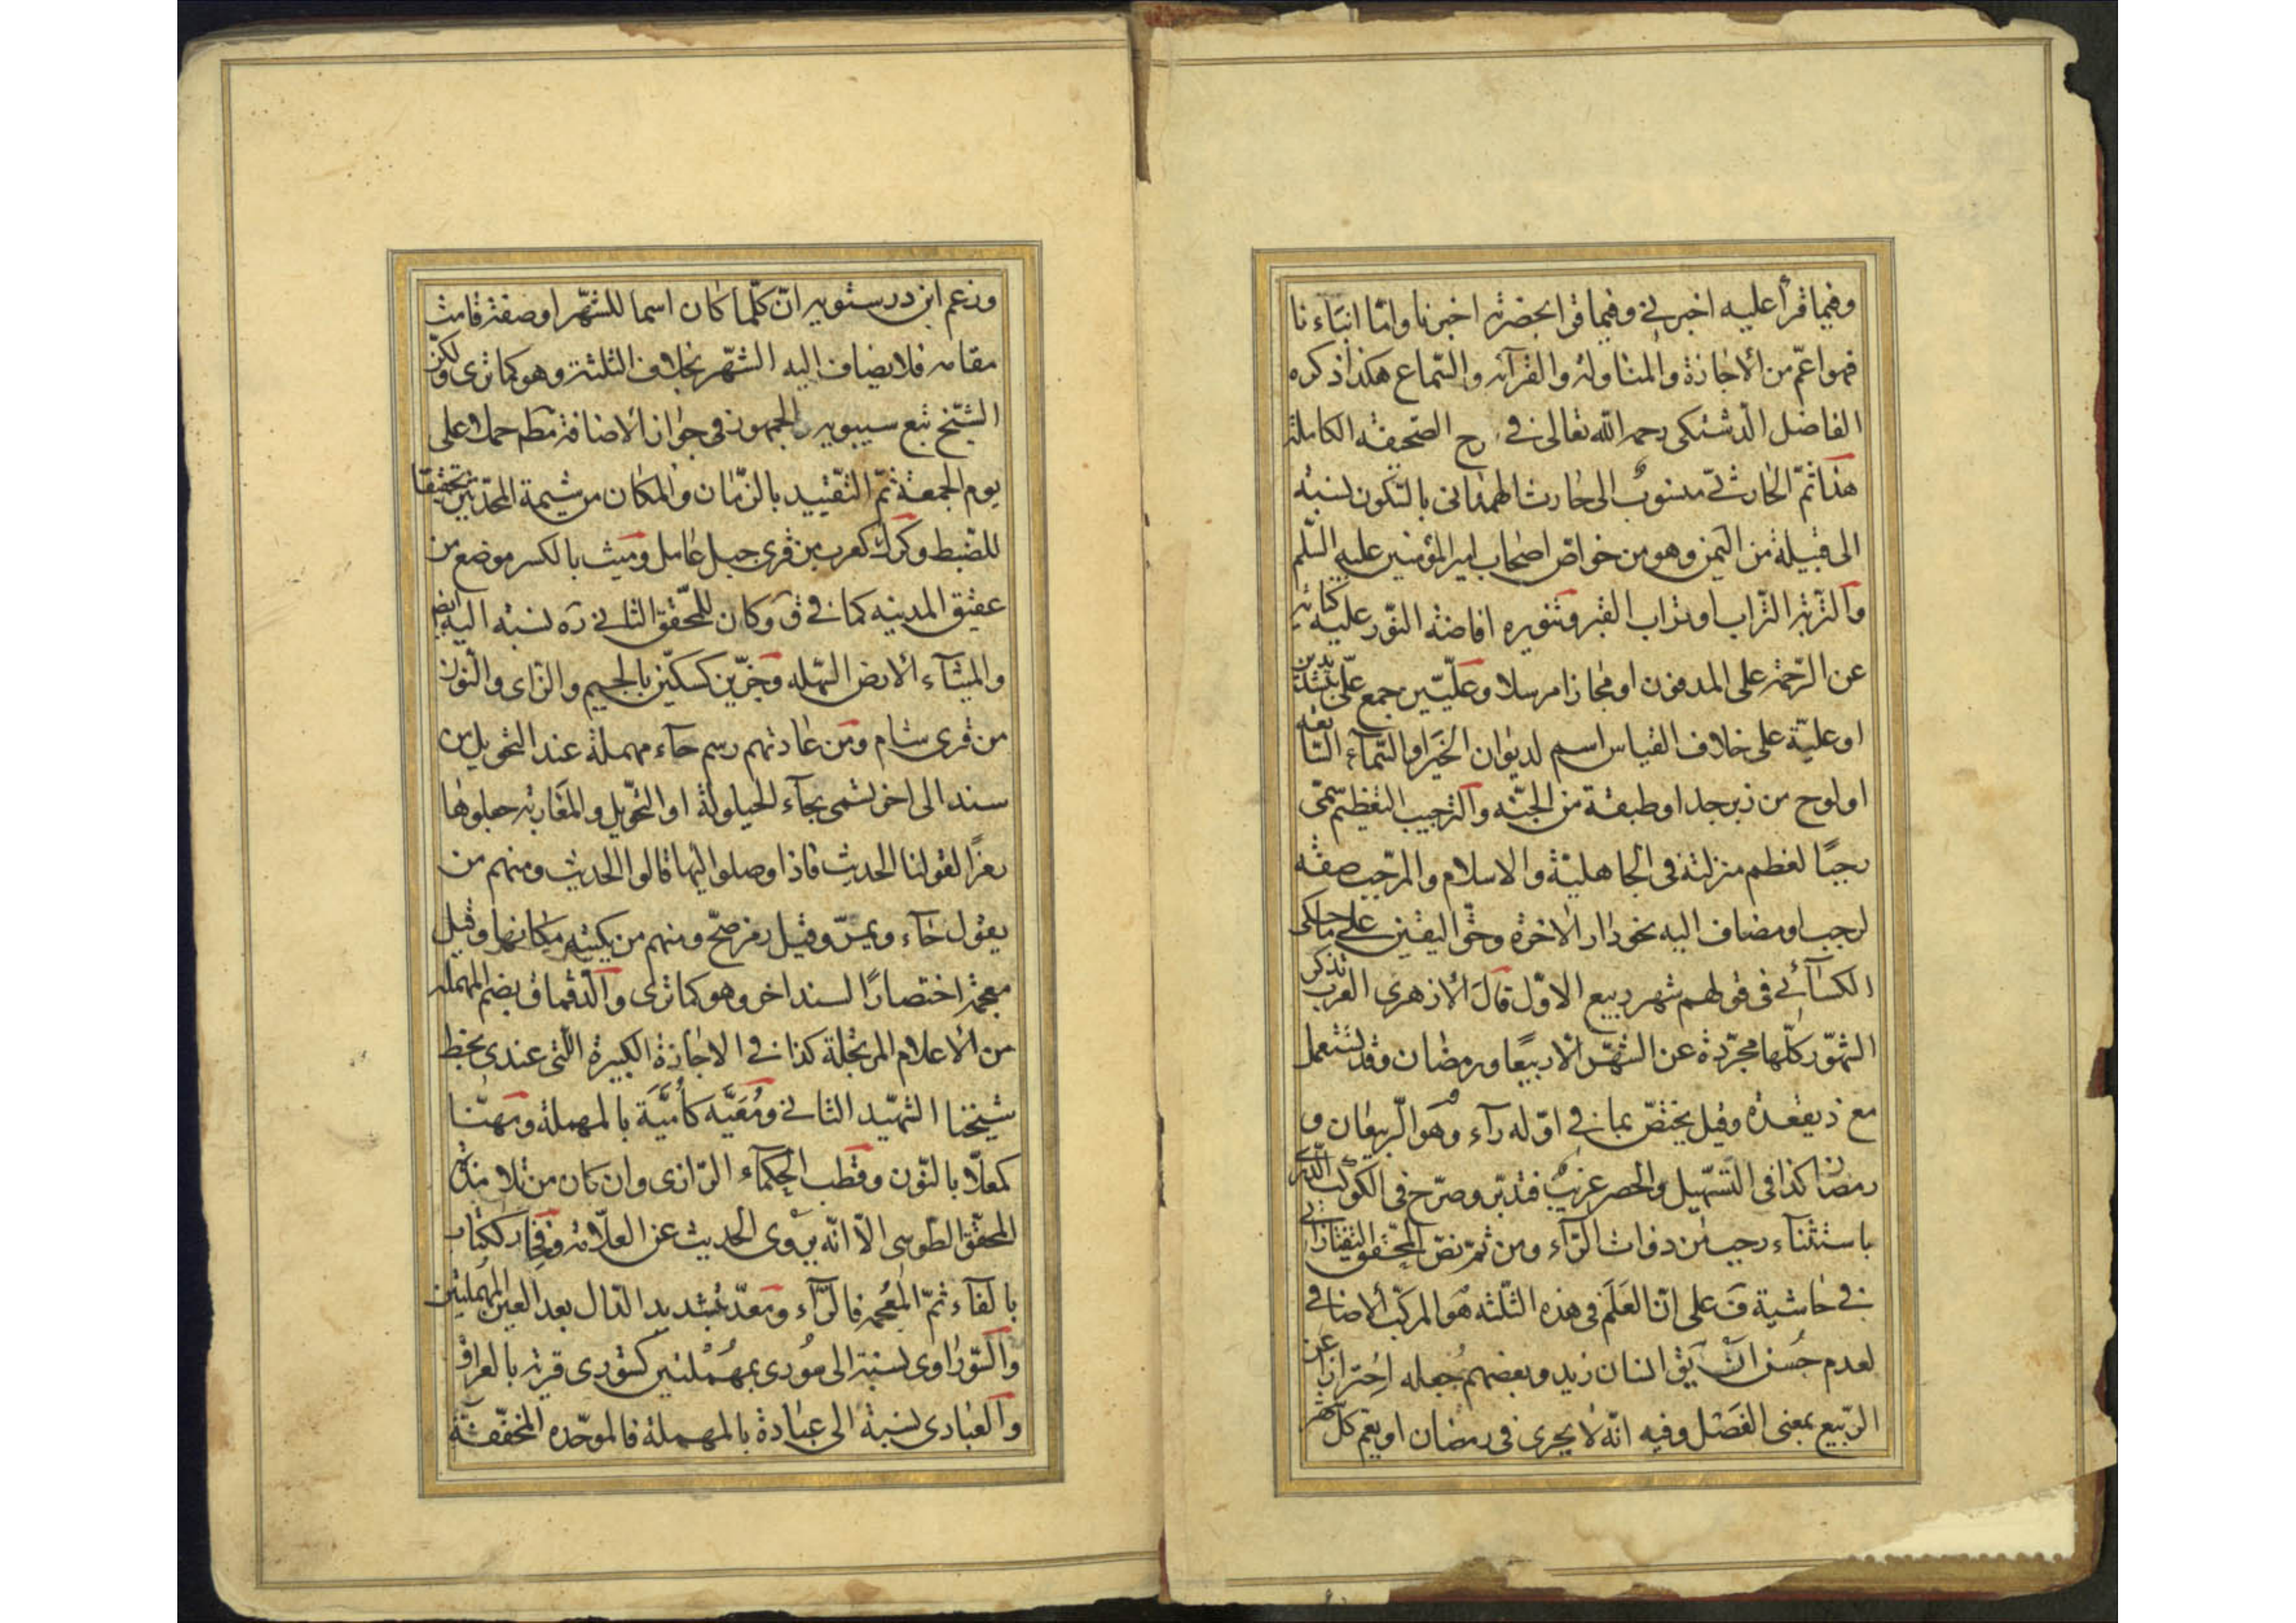 وفيما قرأ عليه اخبرني وفيما قرا بحضرته اخبرنا وامّا انباءنا
فهو اعمّ من الاجازة والمناولة والقرآئة والسّماع هكذا ذكره
الفاضل الدشتكى رحمه الله تعالى في رح الصّحيفة الكاملة
هذا ثمّ الحارثيّ منسوبٌ الى حارث الهمدانى بالسّكون نسبة
الى قبيلة من اليمن وهو من خواصّ اصحاب امير المؤمنين عليه السّلم
والتّربة التّراب او تراب القبر وتنويره افاضة النّور عليه كناية
عن الرّحمة على المدفون او مجازا مرسلا وعليّين جمع علّي بتشديدين
او عليّة على خلاف القياس اسم لديوان الخير او السّمآء السّابعة
او لوح من زبرجد او طبقة من الجنّة والترجيب التعظيم سمّى
رجبًا لعظم منزلته فى الجاهليّة والاسلام والمرجّب صفة
لرجب او مضاف اليه نحو دار الاخرة وحقّ اليقين على ما حكى
الكسآئي فى قولهم شهر ربيع الاوّل قال الازهرى العرب تذكر
الشّهور كلّها مجرّدة عن الشّهر الّا ربيعًا ورمضان وقد يستعمل
مع ذيقعدة وقيل يختصّ بما في اوّله رآء وهو الرّبيعان و
رمضان كذا فى التّسهيل والحصر غريبٌ فتدبّر وصرّح فى الكوكب الدّري
باستثنآء رجب من ذوات الرّآء ومن ثمّ نصّ المحقّق التفتازاني
في حاشية ف على انّ العَلَم فى هذه الثّلثة هو المركّب الاضافي
لعدم حُسن ان يق انسان زيد وبعضهم جعله احترازا عن
الرّبيع بمعنى الفصل وفيه انّه لا يجرى فى رمضان او يعمّ كلّ شهر
وزعم ابن درستويه انّ كلّما كان اسما للشّهر او صفة قامت
مقامه فلا يضاف اليه الشّهر بخلاف الثلثة وهو كما ترى ولكنّ
الشّيخ تبع سيبويه والجمهور فى جواز الاضافة مط حملا على
يوم الجمعة ثمّ التّقييد بالزّمان والمكان من شيمة المحدّثين تحقيقا
للضّبط وكرك كعرب من قرى جبل عامل وميث بالكسر موضع من
عقيق المدينه كما في ق وكان للمحقّق الثانى ره نسبة اليه ايضا
والميثآء الارض السّهلة وجزّين كسكّين بالجيم والزّاى والنّون
من قرى شام ومن عادتهم رسم حآء مهملة عند التحويل من
سند الى اخر تسمى بحآء الحيلولة او التحّويل والمغاربة جعلوها
رمزًا لقولنا الحديث فاذا وصلوا اليها قالوا الحديث ومنهم من
يقول حآء ويمرّ وقيل رمز صحّ ومنهم من يكتبه مكانها وقيل
معجمة اختصارًا لسند اخر وهو كما ترى والدّقماق بضم المهملة
من الاعلام المرتجلة كذا في الاجازة الكبيرة الّتى عندى بخط
شيخنا الشّهيد الثاني ومُعَيَّه كأُميَّة بالمهملة ومهنّا
كمعلّا بالنّون وقطب الحكمآء الرّازى وان كان من تلامذة
المحقّق الطّوسى الّا انّه يروى الحديث عن العلّامة وفخار ككتاب
بالفآء ثمّ المعجمة فالرّآء ومعدّ بتشديد الدّال بعد العين المهملتين
والسّوراوى نسبة الى سُورى بمهملتين كشورى قرية بالعراق
والعبادى نسبة الى عبادة بالمهملة فالموحّدة المخفّفة